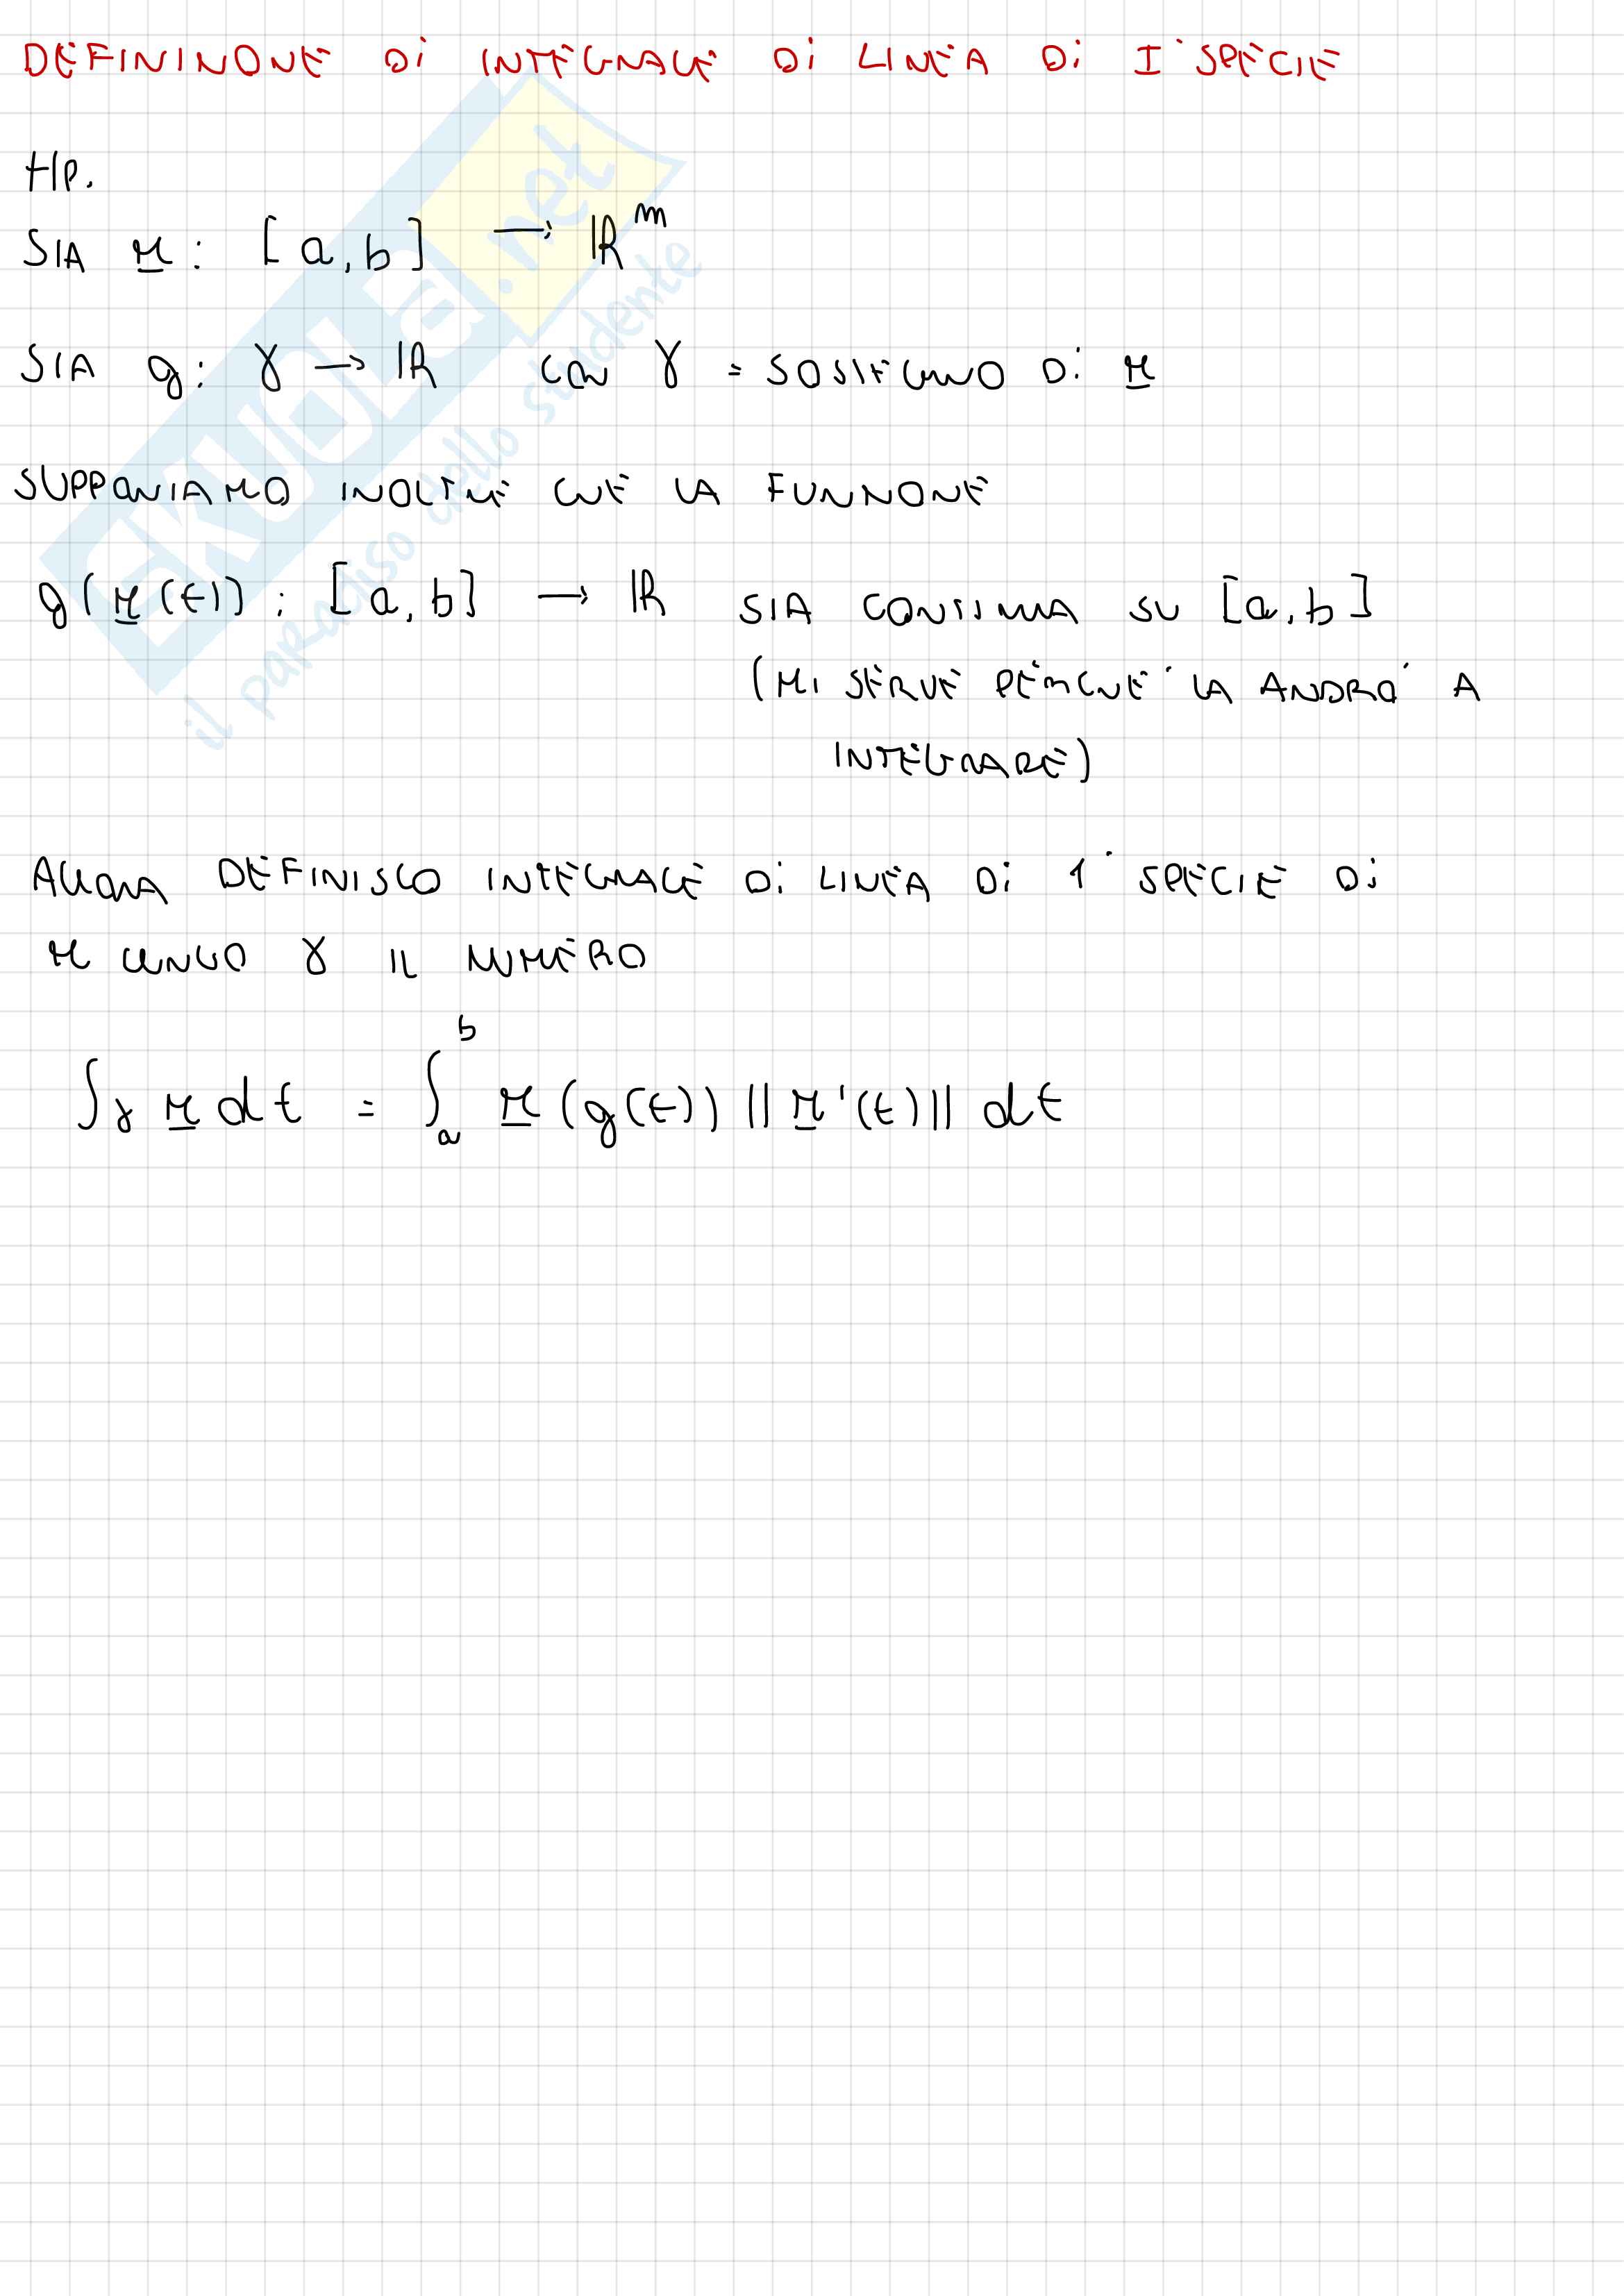 DEFINIZIONE DI INTEGRALE DI LINEA DI I° SPECIE
HP.
SIA r: [a,b] → ℝᵐ
SIA g: γ → ℝ CON γ = SOSTEGNO DI r
SUPPONIAMO INOLTRE CHE LA FUNZIONE
g(r(t)): [a,b] → ℝ SIA CONTINUA SU [a,b]
(MI SERVE PERCHE' LA ANDRO' A
INTEGRARE)
ALLORA DEFINISCO INTEGRALE DI LINEA DI 1° SPECIE DI
r LUNGO γ IL NUMERO
∫γ r dt = ∫ₐᵇ r(g(t)) ||r'(t)|| dt
SKUOLA.net
il paradiso dello studente